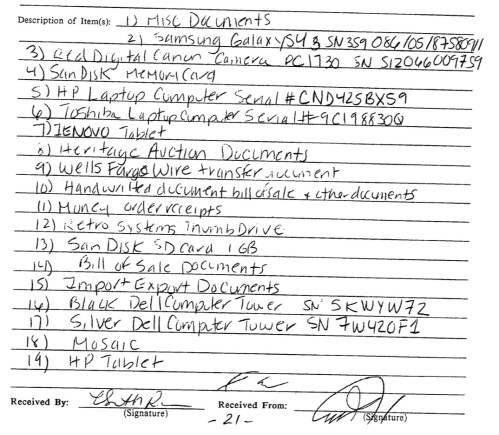 Description of Item(s): 1) Misc Documents
2) Samsung Galaxy S4 3 SN 359 086/05/8758091/1
3) Red Digital Canon Camera PC1730 SN 512046009759
4) SanDisk Memory Card
5) HP Laptop Computer Serial # CND425BX59
6) Toshiba Laptop Computer Serial #9C198830Q
7) LENOVO Tablet
8) Heritage Auction Documents
9) Wells Fargo Wire transfer document
10) Handwritted document bill of sale + other documents
11) Money order receipts
12) Retro Systems Thumb Drive
13) San Disk SD card 1 GB
14) Bill of Sale Documents
15) Import Export Documents
16) Black Dell Computer Tower SN 5KWYW72
17) Silver Dell Computer Tower SN 7W420F1
18) Mosaic
19) HP Tablet
Received By: Received From:
(Signature) (Signature)
-21-